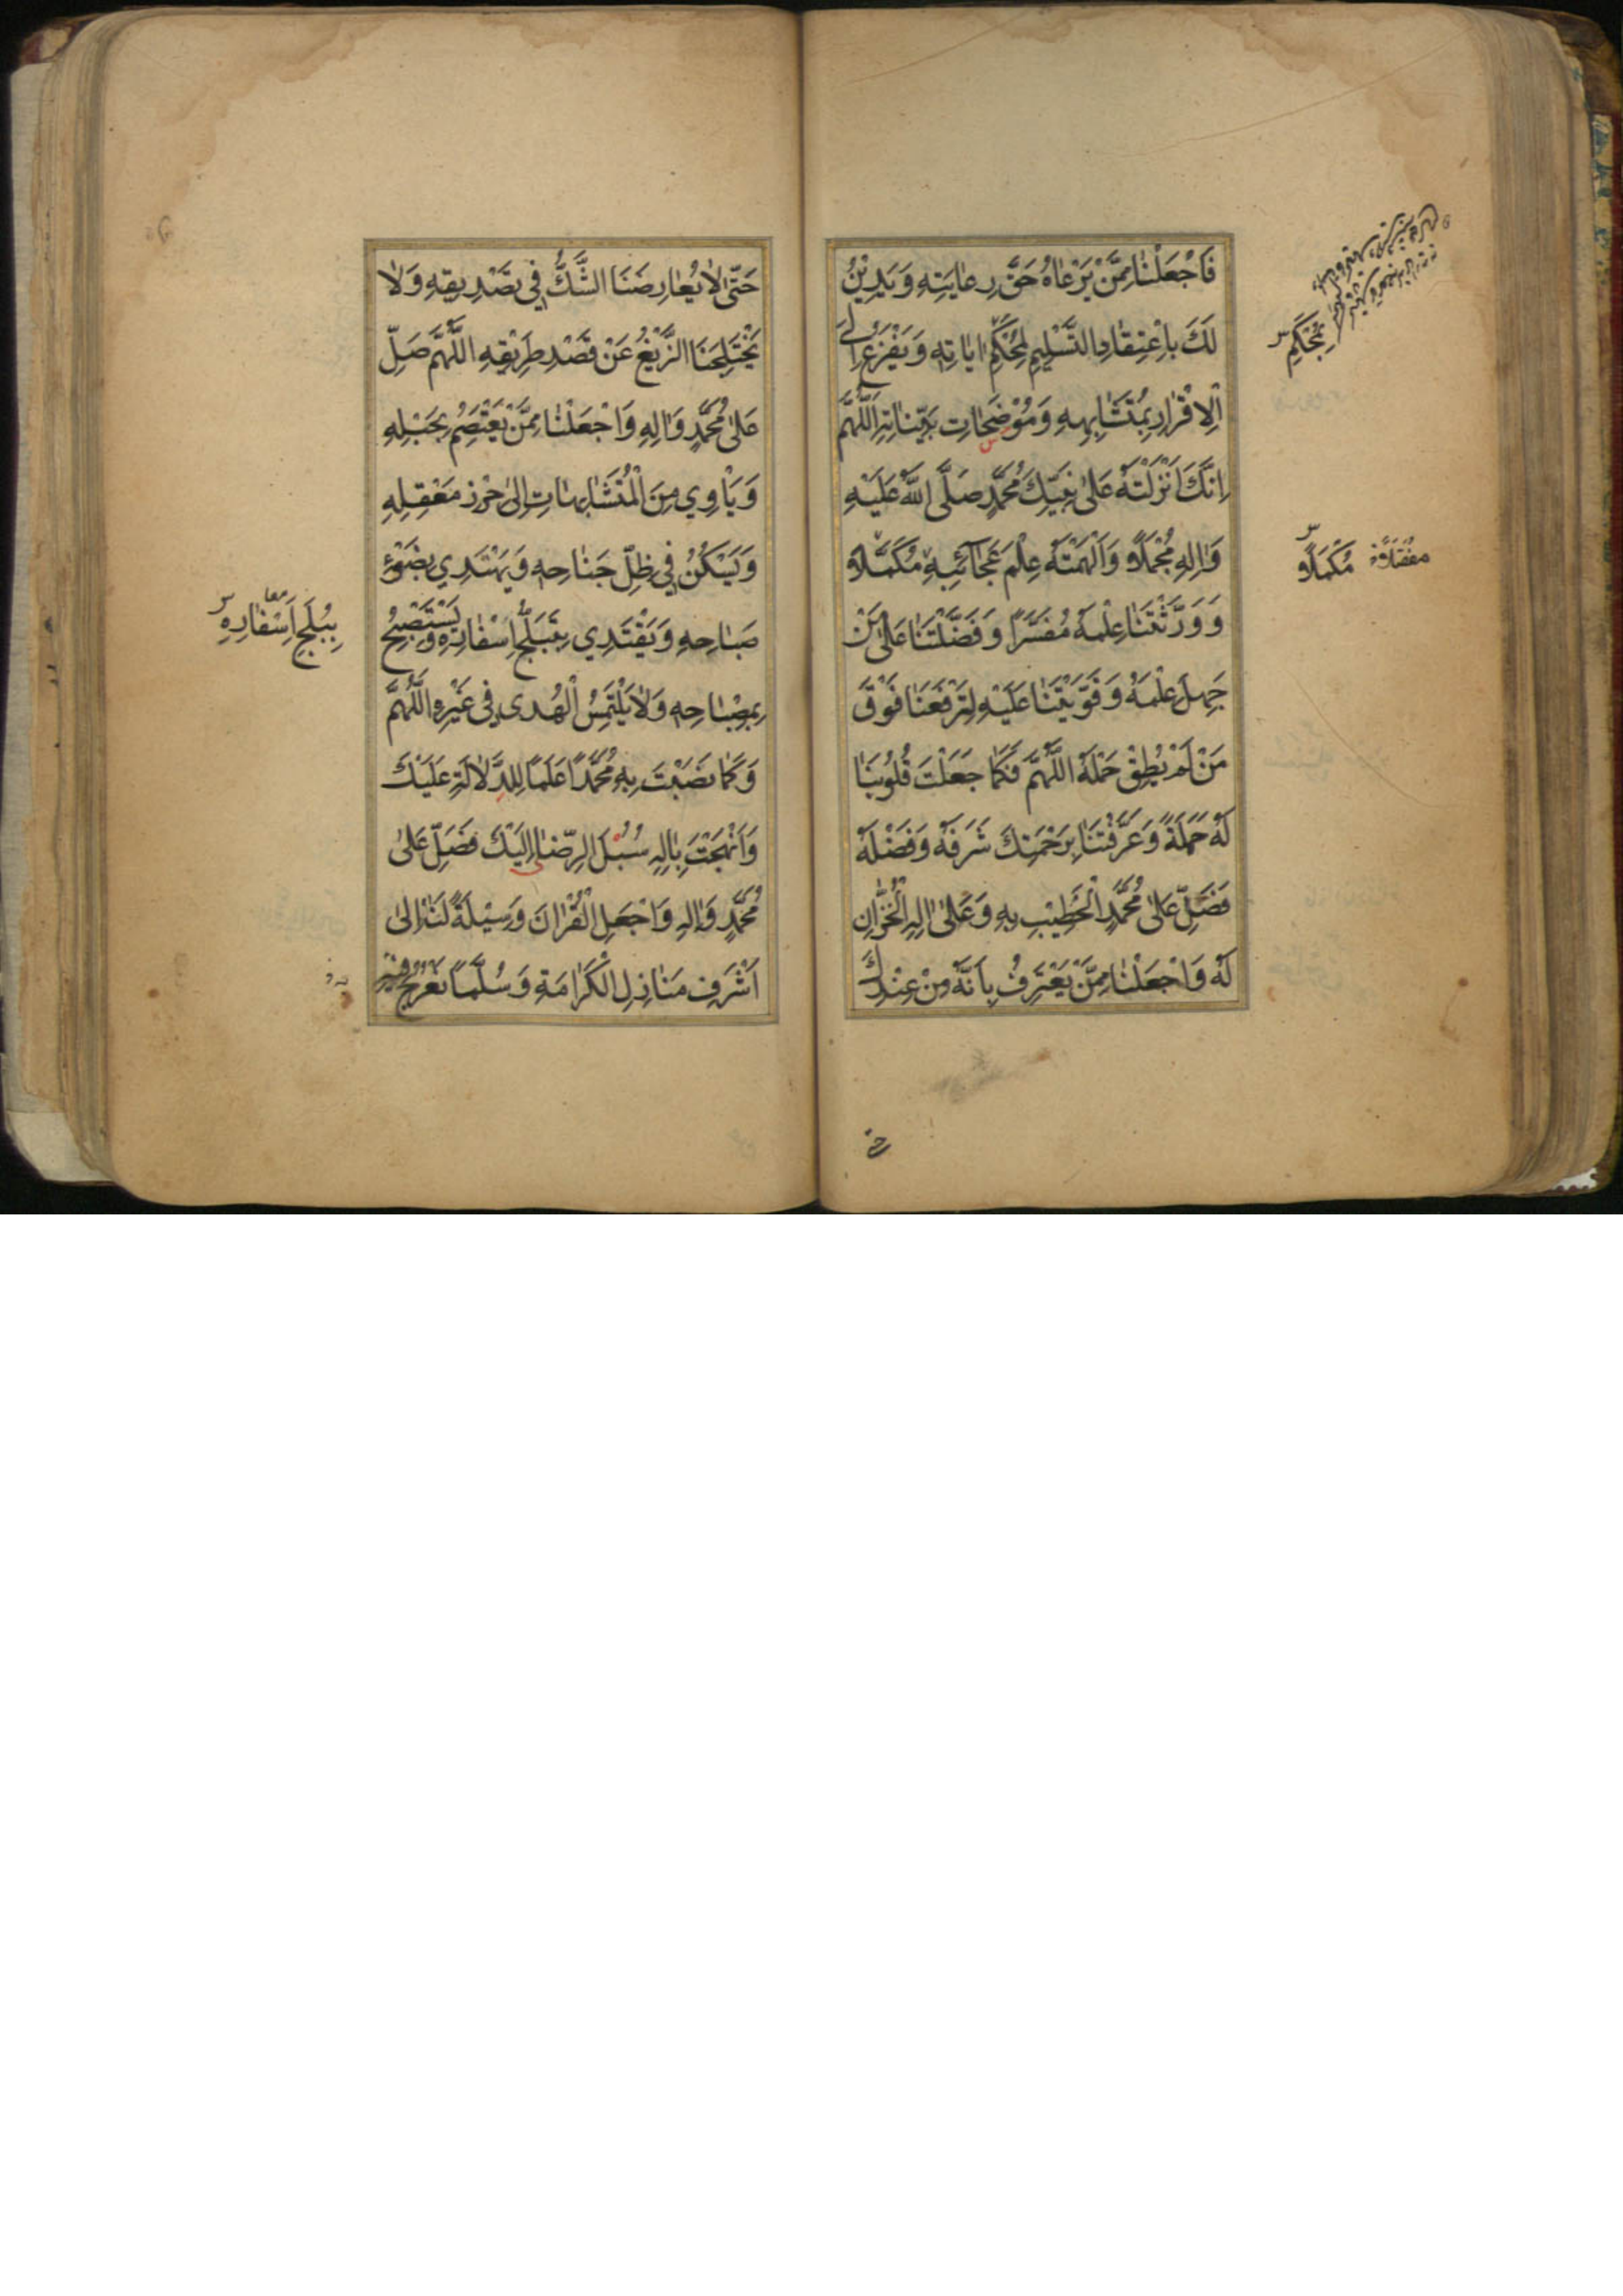 فَاجْعَلْنَا مِمَّنْ يَرْعَاهُ حَقَّ رِعَايَتِهِ وَيَدِيْنُ
لَكَ بِاعْتِقَادِ التَّسْلِيمِ لِمُحْكَمِ اٰيَاتِهِ وَيَفْزَعُ اِلَى
الْاِقْرَارِ بِمُتَشَابِهِهِ وَمُوْضَحَاتِ بَيِّنَاتِهِ اَللّٰهُمَّ
اِنَّكَ اَنْزَلْتَهُ عَلٰى نَبِيِّكَ مُحَمَّدٍ صَلَّى اللّٰهُ عَلَيْهِ
وَاٰلِهِ مُجْمَلًا وَاَلْهَمْتَهُ عِلْمَ عَجَآئِبِهِ مُكَمَّلًا
وَوَرَّثْتَنَا عِلْمَهُ مُفَسَّرًا وَفَضَّلْتَنَا عَلٰى مَنْ
جَهِلَ عِلْمَهُ وَقَوَّيْتَنَا عَلَيْهِ لِتَرْفَعَنَا فَوْقَ
مَنْ لَمْ يُطِقْ حَمْلَهُ اللّٰهُمَّ فَكَمَا جَعَلْتَ قُلُوْبَنَا
لَهُ حَمَلَةً وَعَرَّفْتَنَا بِرَحْمَتِكَ شَرَفَهُ وَفَضْلَهُ
فَصَلِّ عَلٰى مُحَمَّدٍ الْخَطِيْبِ بِهِ وَعَلٰى اٰلِهِ الْخُزَّانِ
لَهُ وَاجْعَلْنَا مِمَّنْ يَعْتَرِفُ بِاَنَّهُ مِنْ عِنْدِكَ
بِمُحْكَمِ
مُكْمَلًا
حَتّٰى لَا يُعَارِضَنَا الشَّكُّ فِي تَصْدِيقِهِ وَلَا
يَخْتَلِجَنَا الزَّيْغُ عَنْ قَصْدِ طَرِيْقِهِ اللّٰهُمَّ صَلِّ
عَلٰى مُحَمَّدٍ وَاٰلِهِ وَاجْعَلْنَا مِمَّنْ يَعْتَصِمُ بِحَبْلِهِ
وَيَأْوِي مِنَ الْمُتَشَابِهَاتِ اِلٰى حِرْزِ مَعْقِلِهِ
وَيَسْكُنُ فِي ظِلِّ جَنَاحِهِ وَيَهْتَدِي بِضَوْءِ
صَبَاحِهِ وَيَقْتَدِي بِتَبَلُّجِ اِسْفَارِهِ وَيَسْتَصْبِحُ
بِمِصْبَاحِهِ وَلَا يَلْتَمِسُ الْهُدٰى فِي غَيْرِهِ اَللّٰهُمَّ
وَكَمَا نَصَبْتَ بِهِ مُحَمَّدًا عَلَمًا لِلدَّلَالَةِ عَلَيْكَ
وَاَنْهَجْتَ بِاٰلِهِ سُبُلَ الرِّضَا اِلَيْكَ فَصَلِّ عَلٰى
مُحَمَّدٍ وَاٰلِهِ وَاجْعَلِ الْقُرْاٰنَ وَسِيْلَةً لَنَا اِلٰى
اَشْرَفِ مَنَازِلِ الْكَرَامَةِ وَسُلَّمًا نَعْرُجُ فِيْهِ
بِبُلَجِ اَسْفَارِهِ
معا